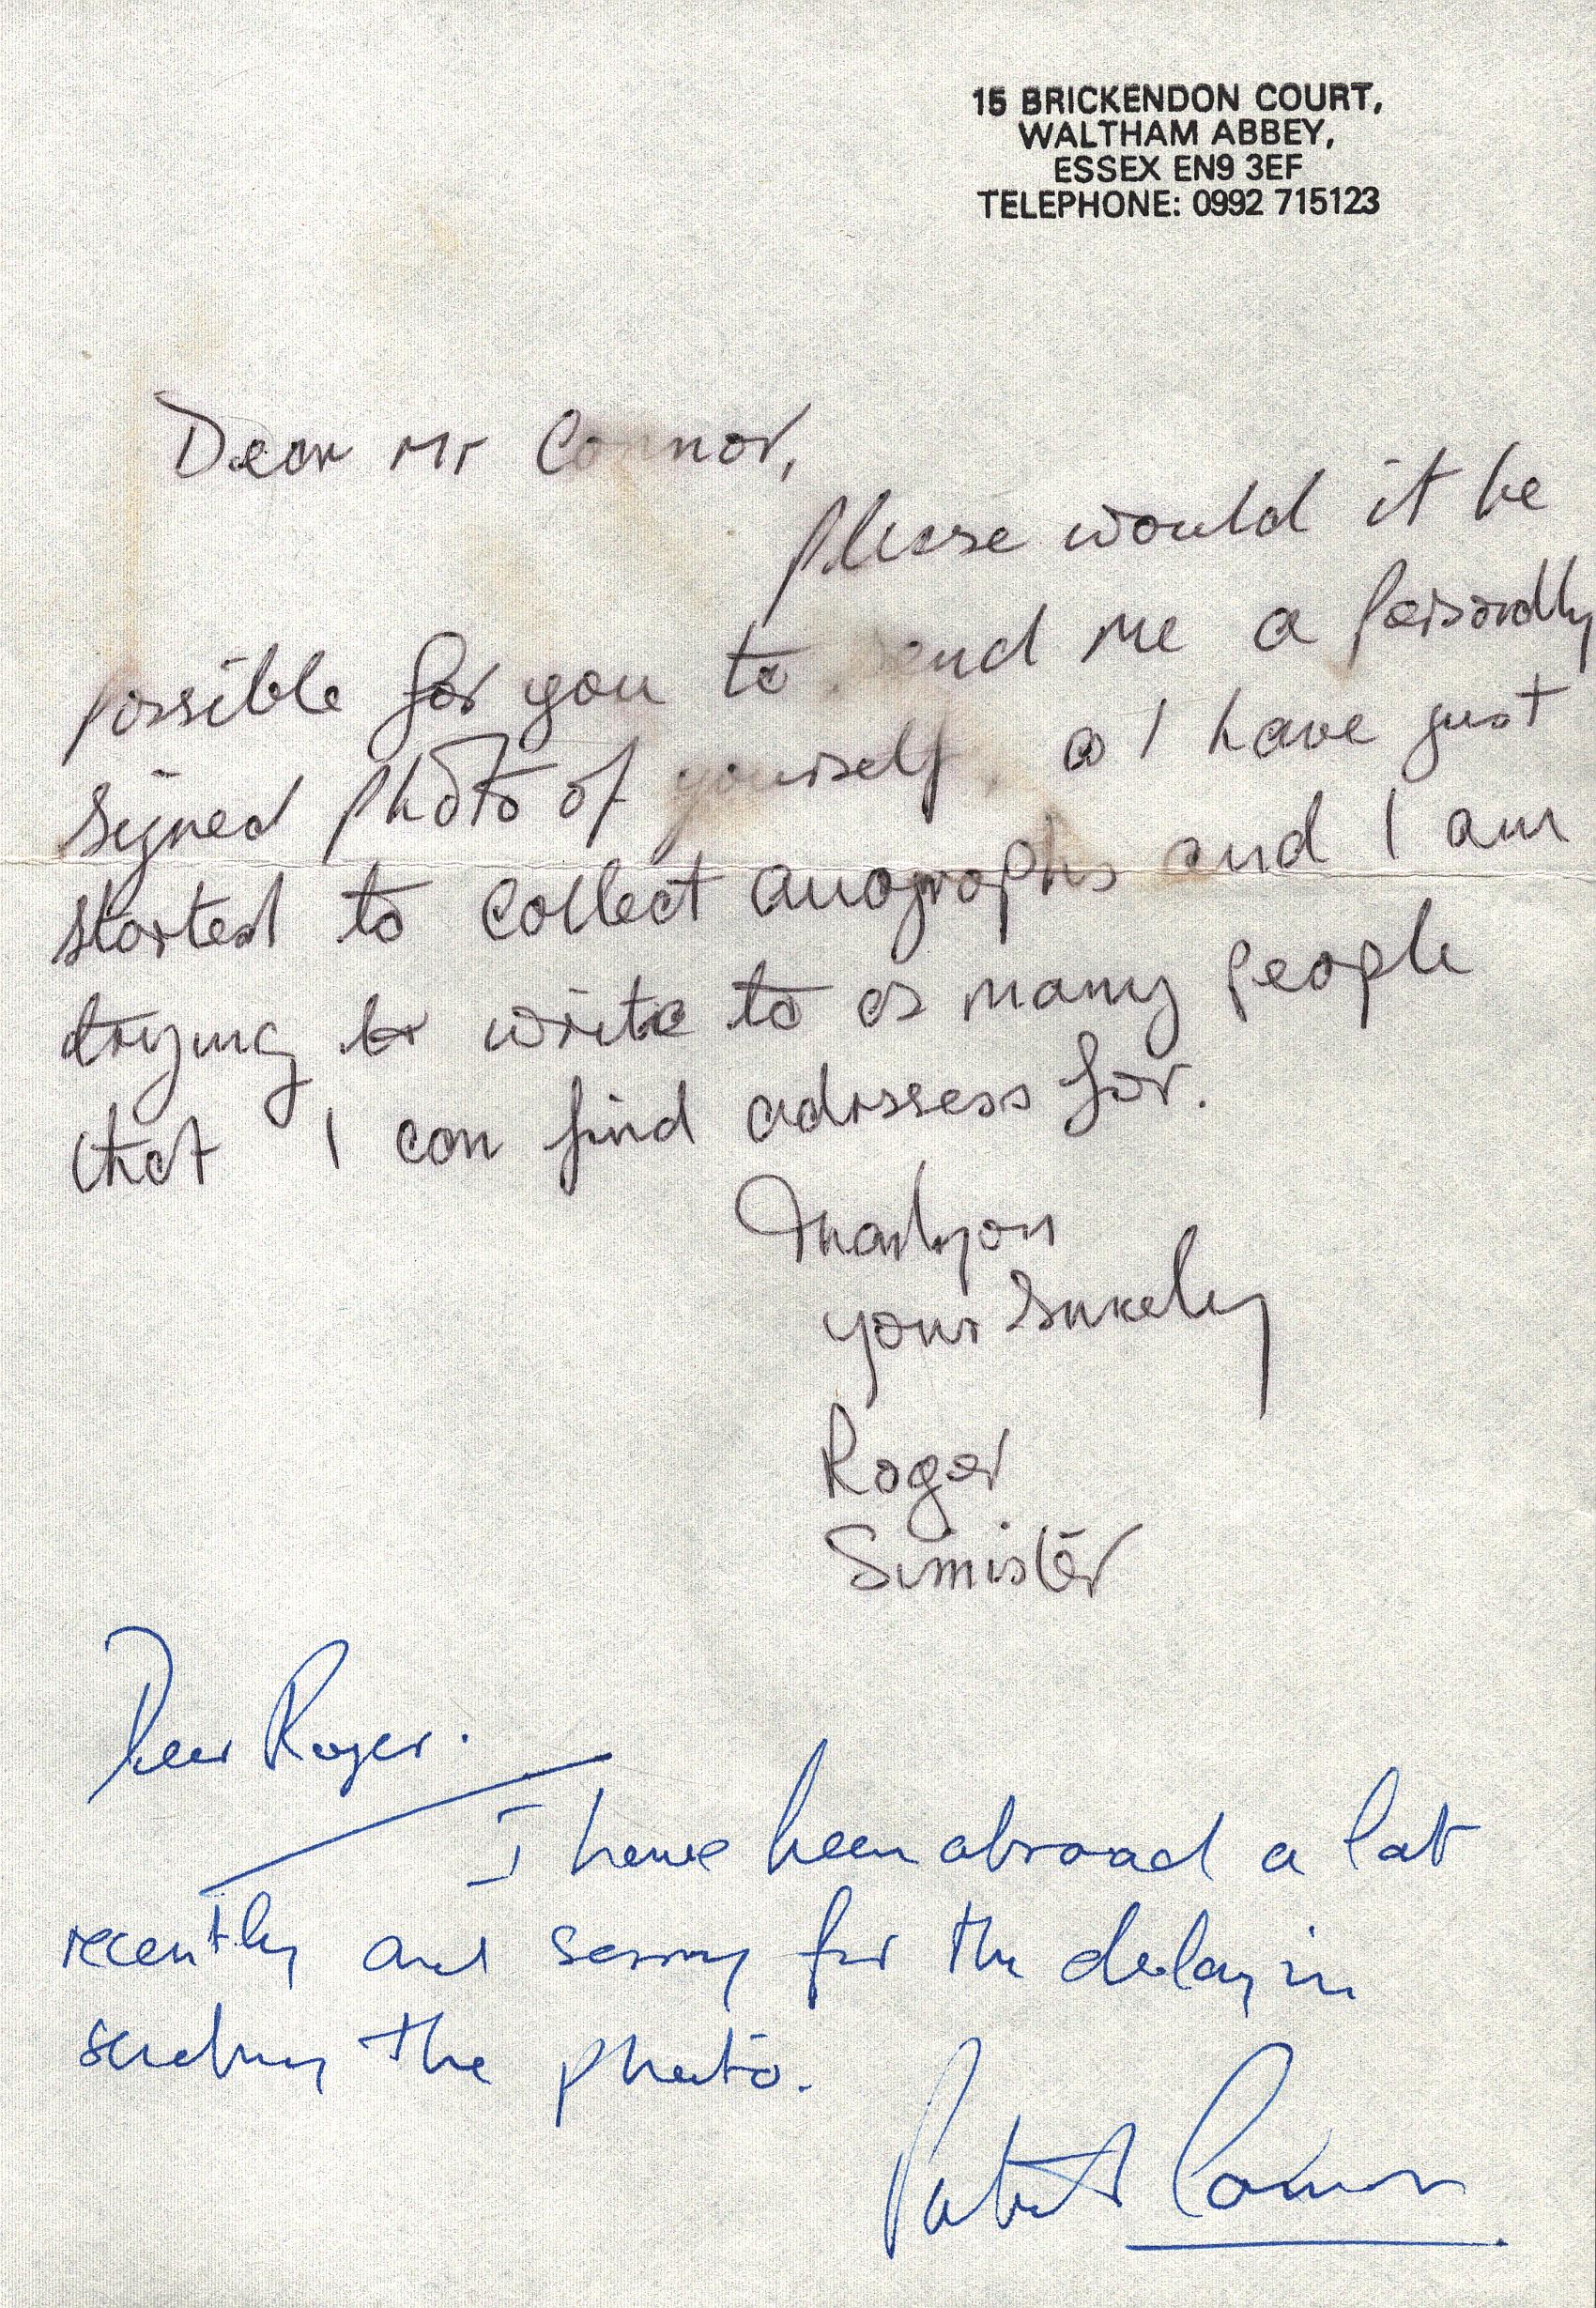 15 BRICKENDON COURT,
WALTHAM ABBEY,
ESSEX EN9 3EF
TELEPHONE: 0992 715123
Dear Mr Connor,
Please would it be
possible for you to send me a personally
signed photo of yourself, as I have just
started to collect auographs and I am
trying to write to as many people
that I can find adrssess for.
Thankyou
your Sincely
Roger
Simister
Dear Roger.
I have been abroad a lot
recently and sorry for the delay in
sending the photo.
Patrick Connor